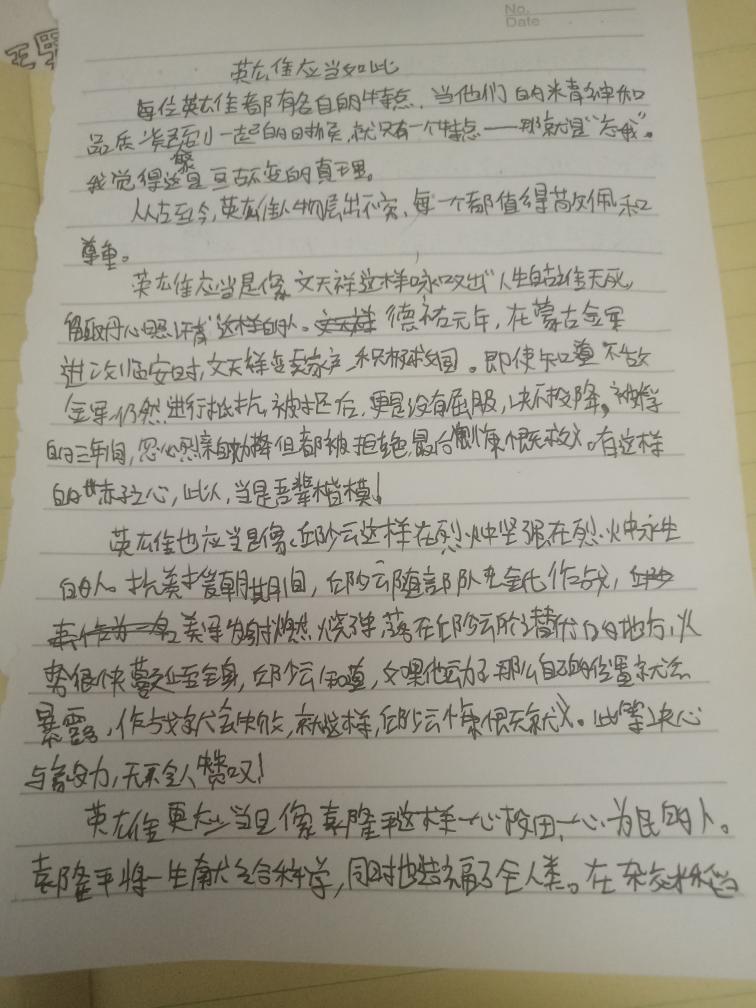 No.
Date
英雄应当如此
每位英雄都有各自的特点,当他们的精神和
品质紧密到一起的时候,就只有一个特点——那就是"忘我"。
我觉得这是亘古不变的真理。
从古至今,英雄人物层出不穷,每一个都值得敬佩和
尊重。
英雄应当是像文天祥这样咏叹出"人生自古谁无死,
留取丹心照汗青"这样的人。德祐元年,在蒙古全军
进攻临安时,文天祥变卖家产,积极救国。即使知道不敌
全军仍然进行抵抗,被捕后,更是没有屈服,决不投降,被俘
的三年间,忽必烈亲自劝降但都被拒绝,最后慷慨就义。有这样
的赤子之心,此人,当是吾辈楷模!
英雄也应当是像邱少云这样在烈火中坚强,在烈火中永生
的人。抗美援朝期间,邱少云随部队在金化作战,
美军发射燃烧弹,落在邱少云所潜伏的地方,火
势很快蔓延至全身,邱少云知道,如果他动了那么自己的位置就会
暴露,作战就会失败,就这样,邱少云慷慨就义。此等决心
与毅力,无不令人赞叹!
英雄更应当是像袁隆平这样一心投田,一心为民的人。
袁隆平将一生献给科学,同时也造福了全人类。在杂交水稻